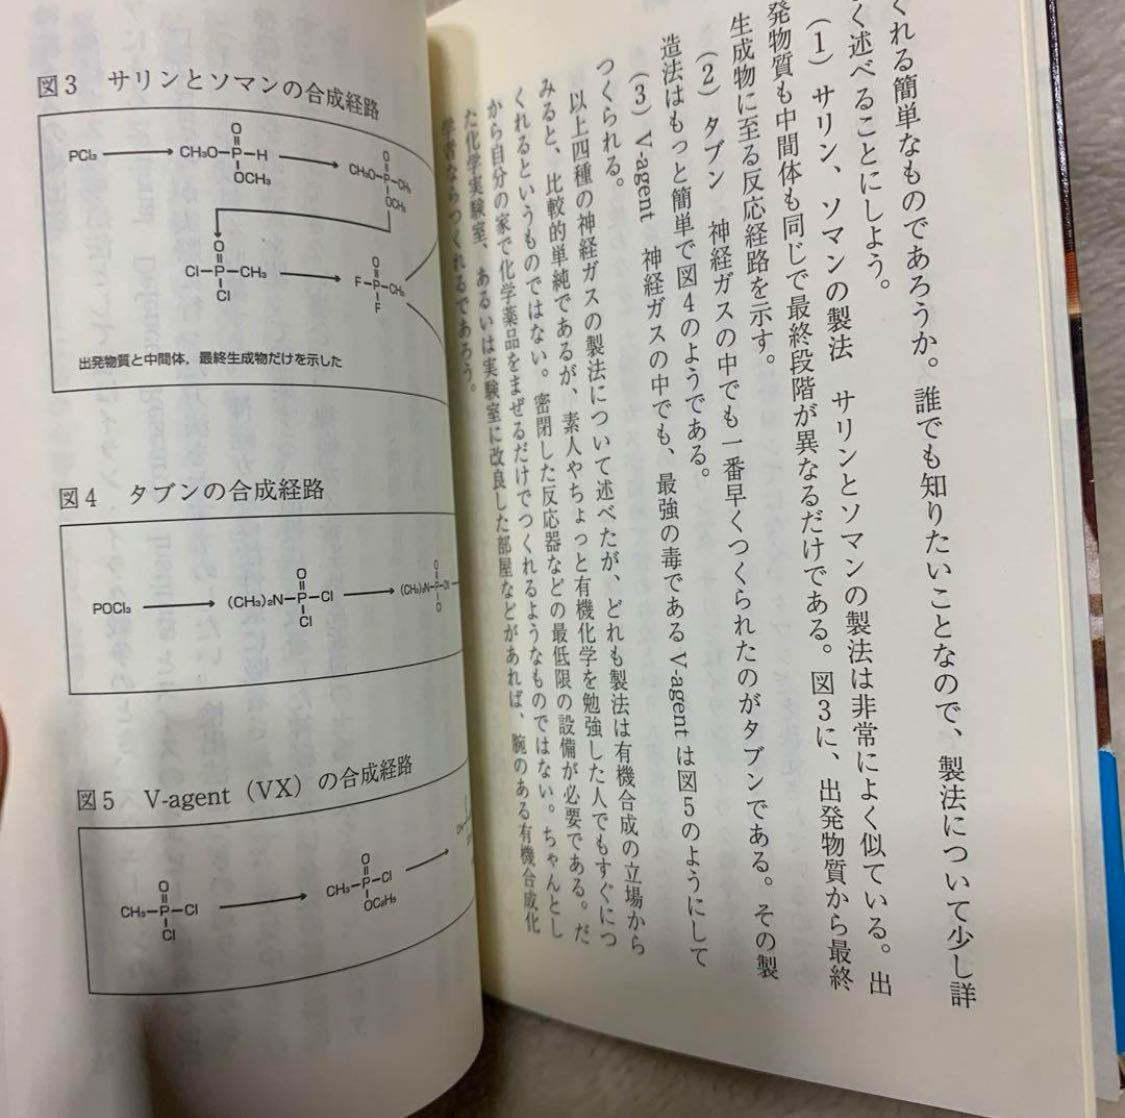 くれる簡単なものであろうか。誰でも知りたいことなので、製法について少し詳
く述べることにしよう。
(1) サリン、ソマンの製法 サリンとソマンの製法は非常によく似ている。出
発物質も中間体も同じで最終段階が異なるだけである。図3に、出発物質から最終
生成物に至る反応経路を示す。
(2) タブン 神経ガスの中でも一番早くつくられたのがタブンである。その製
造法はもっと簡単で図4のようである。
(3) V-agent 神経ガスの中でも、最強の毒であるV-agentは図5のようにして
つくられる。
以上四種の神経ガスの製法について述べたが、どれも製法は有機合成の立場から
みると、比較的単純であるが、素人やちょっと有機化学を勉強した人でもすぐにつ
くれるというものではない。密閉した反応器などの最低限の設備が必要である。だ
から自分の家で化学薬品をまぜるだけでつくれるようなものではない。ちゃんとし
た化学実験室、あるいは実験室に改良した部屋などがあれば、腕のある有機合成化
学者ならつくれるであろう。
図3 サリンとソマンの合成経路
出発物質と中間体,最終生成物だけを示した
図4 タブンの合成経路
図5 V-agent(VX)の合成経路